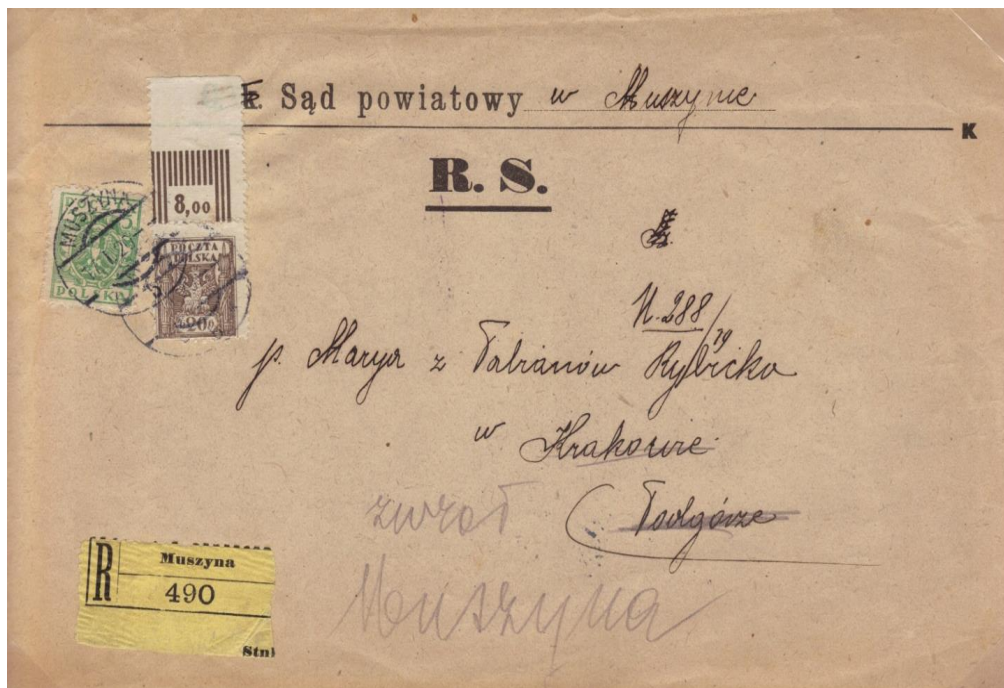 k. Sąd powiatowy w Muszynie
K
R. S.
8,00
MUSZYNA
POCZTA
POLSKA
20
POLSKA
N. 288/19
p. Marya z Fabianów Rybicka
w Krakowie
Podgórze
zwrot
Muszyna
R
Muszyna
490
Stnb